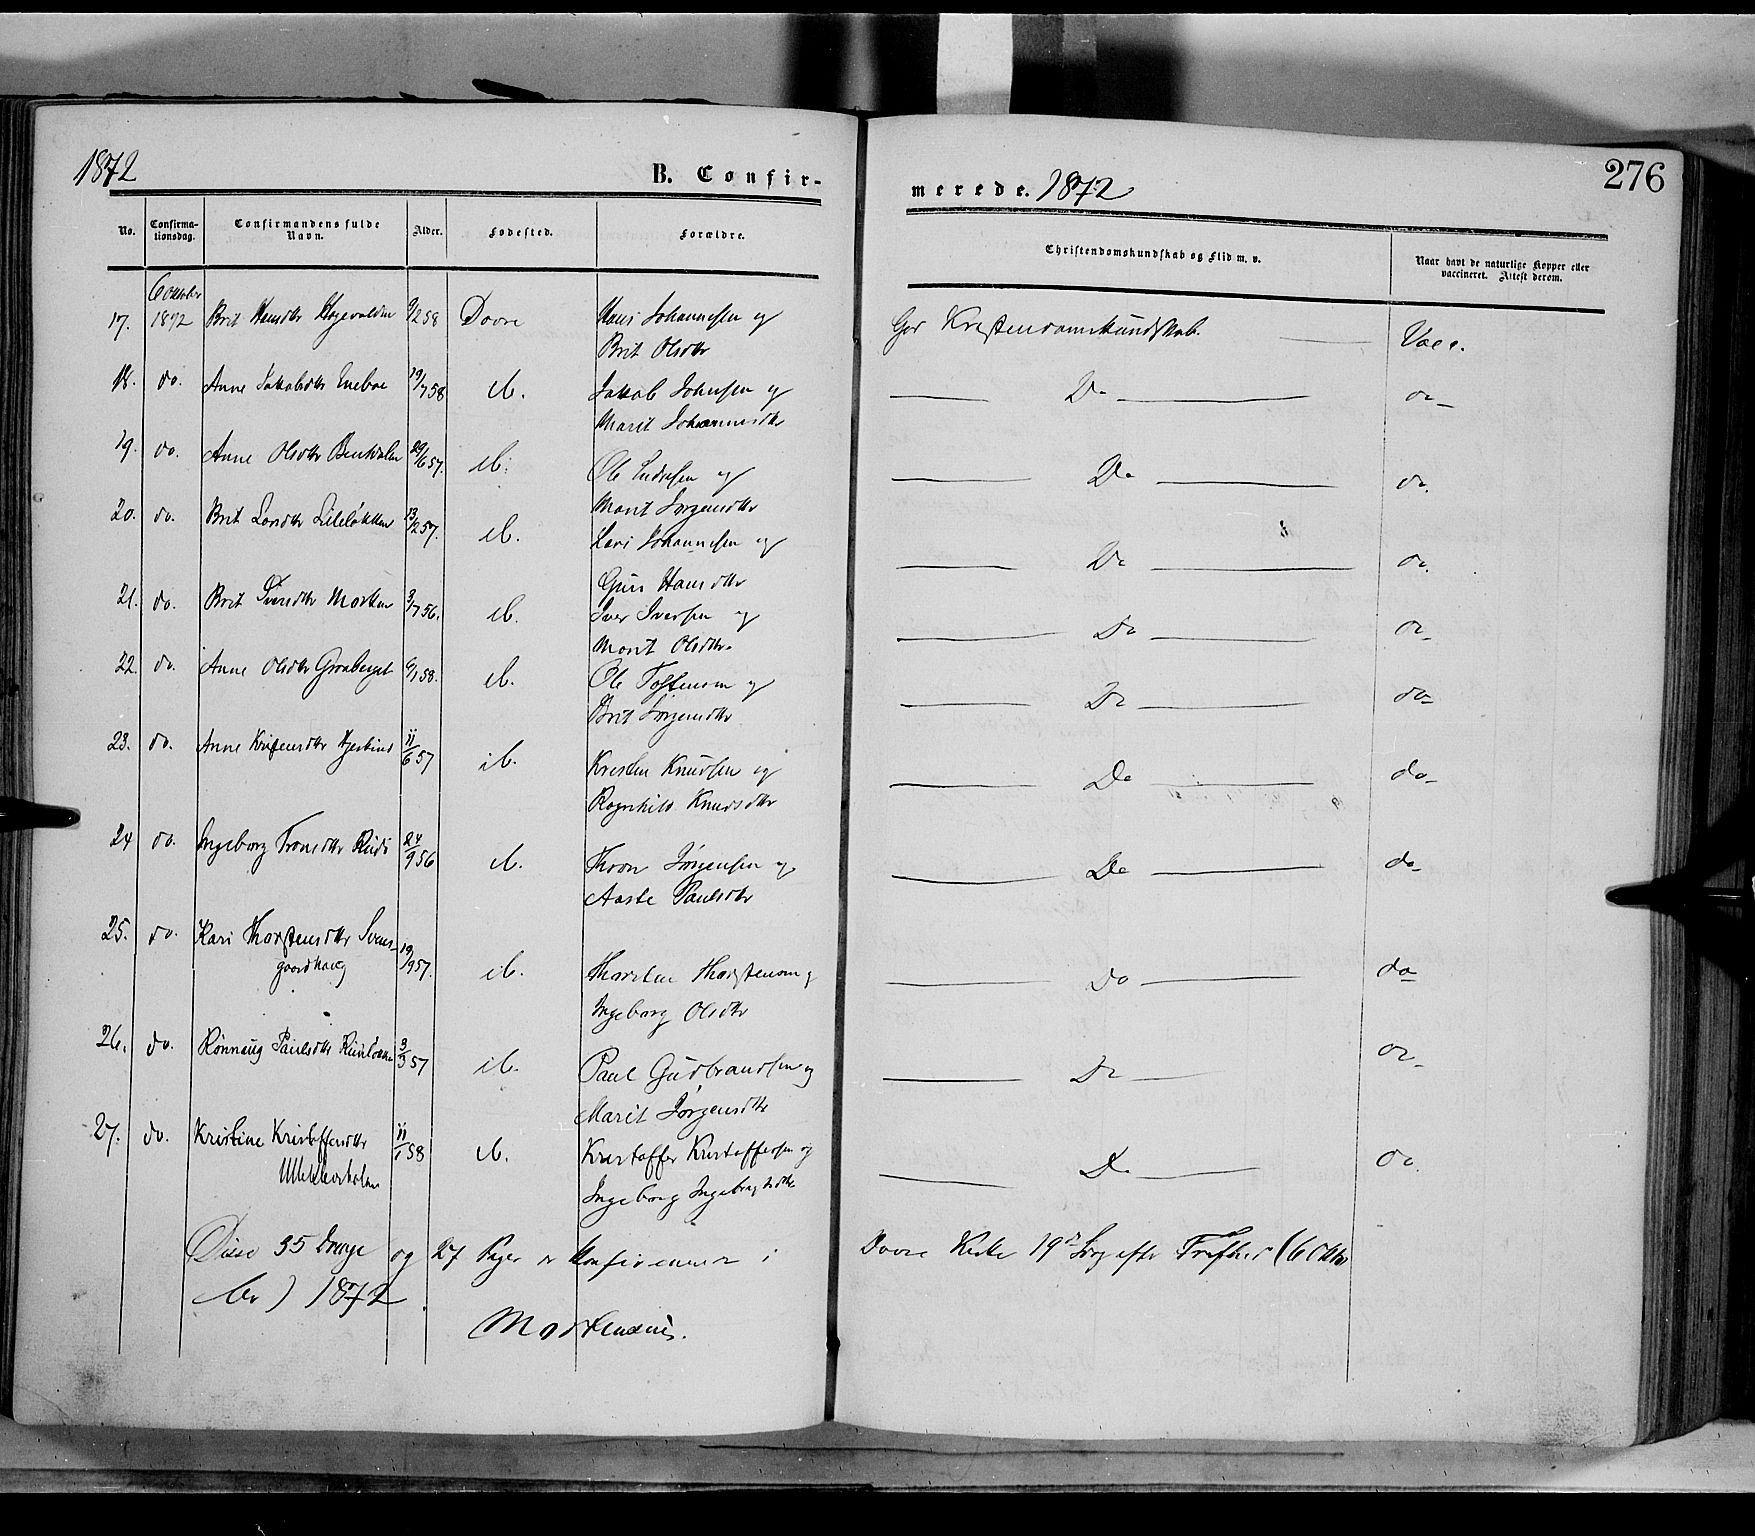 1872
B. Confir-
merede. 1872
276
No.
Confirma-
tionsdag.
Confirmandens fulde
Navn.
Alder.
Fødested.
Forældre.
Christendomskundskab og Flid m. v.
Naar havt de naturlige Kopper eller
vaccineret. Attest derom.
6 October
17. 1872 Brit Hansdtr 9/2 58 Dovre Hans Johannesen og God Kristendomskundskab. Vacc.
Brit Olsdtr
18. do. Anne Jakobsdtr 19/7 58 ib. Jakob Johnsen og Do do
Marit Johannesdtr
19. do. Anne Olsdtr 29/6 57. ib. Ole og Do do.
Marit Jørgensdtr
20. do. Brit Larsdtr Lilleløkken 13/2 57. ib. Lars Johannesen og Do do.
Guri Hansdtr
21. do. Brit Iversdtr 3/7 56. ib. Iver Iversen og Do do
Marit Olsdtr.
22 do. Anne Olsdtr Grønberget 6/1 58. ib. Ole Tostensen og Do do
Brit Jørgensdtr
23. do. Anne Kristensdtr Hjerkind 11/6 57 ib. Kristen Knudsen og Do do
Ragnhild Knudsdtr
24 do. Ingeborg Tronsdtr Ruds 24/9 56 ib. Thron Jørgensen og Do do
Aaste Paulsdtr
25. do. Kari Thorstensdtr Svens-
gaardhaug 19/9 57. ib. Thorsten Thorstensen og Do do
Ingeborg Olsdtr
26. do. Rønnaug Paulsdtr 3/3 57 ib. Paul Gudbrandsen og Do do
Marit Jørgensdtr
27. do. Kristine Kristoffersdtr 11/1 58 ib. Kristoffer Kristoffersen og Do do.
Ingeborg Ingebrigtsdtr
Disse 35 Drenge og 27 Piger er konfirmerede i Dovre Kirke 19de Søndag efter Trefold (6 Okto
ber) 1872.